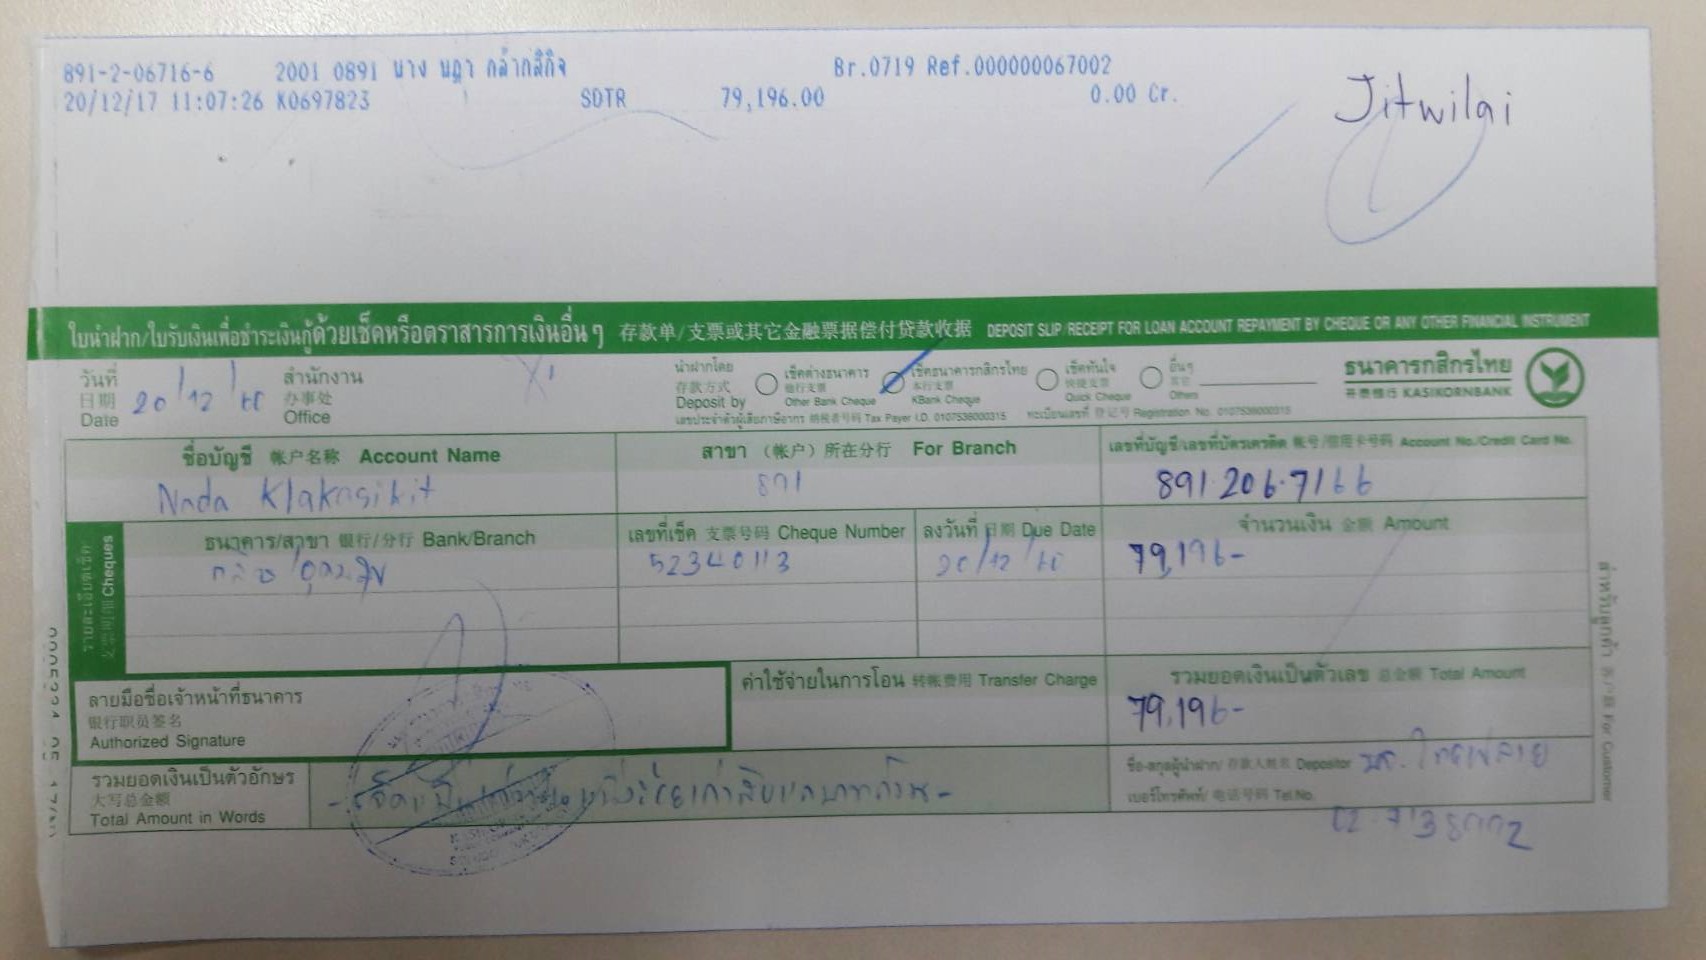 891-2-06716-6 2001 0891 นาง นฎา กล้ากสิกิจ Br.0719 Ref.000000067002
20/12/17 11:07:26 K0697823 SDTR 79,196.00 0.00 Cr.
Jitwilai
ใบนำฝาก/ใบรับเงินเพื่อชำระเงินกู้ด้วยเช็คหรือตราสารการเงินอื่น ๆ 存款单/支票或其它金融票据偿付贷款收据 DEPOSIT SLIP/RECEIPT FOR LOAN ACCOUNT REPAYMENT BY CHEQUE OR ANY OTHER FINANCIAL INSTRUMENT
วันที่ 日期 Date 20/12/60
สำนักงาน 办事处 Office
นำฝากโดย 存款方式 Deposit by
เช็คต่างธนาคาร 他行支票 Other Bank Cheque
เช็คธนาคารกสิกรไทย 本行支票 KBank Cheque
เช็คทันใจ 快捷支票 Quick Cheque
อื่นๆ 其它 Others
ธนาคารกสิกรไทย
开泰银行 KASIKORNBANK
เลขประจำตัวผู้เสียภาษีอากร 纳税者号码 Tax Payer I.D. 0107536000315 ทะเบียนเลขที่ 登记号 Registration No. 0107536000315
ชื่อบัญชี 帐户名称 Account Name
Nada Klakasikit
สาขา (帐户) 所在分行 For Branch
891
เลขที่บัญชี/เลขที่บัตรเครดิต 帐号/信用卡号码 Account No./Credit Card No.
891-206-7166
รายละเอียดเช็ค
Cheques
ธนาคาร/สาขา 银行/分行 Bank/Branch
เลขที่เช็ค 支票号码 Cheque Number
52340113
ลงวันที่ 日期 Due Date
20/12/60
จำนวนเงิน 金额 Amount
79,196-
ลายมือชื่อเจ้าหน้าที่ธนาคาร
银行职员签名
Authorized Signature
ค่าใช้จ่ายในการโอน 转帐费用 Transfer Charge
รวมยอดเงินเป็นตัวเลข 总金额 Total Amount
79,196-
รวมยอดเงินเป็นตัวอักษร
大写总金额
Total Amount in Words
ชื่อ-สกุลผู้นำฝาก/ 存款人姓名 Depositor
เบอร์โทรศัพท์/ 电话号码 Tel.No.
สำหรับลูกค้า 客户联 For Customer